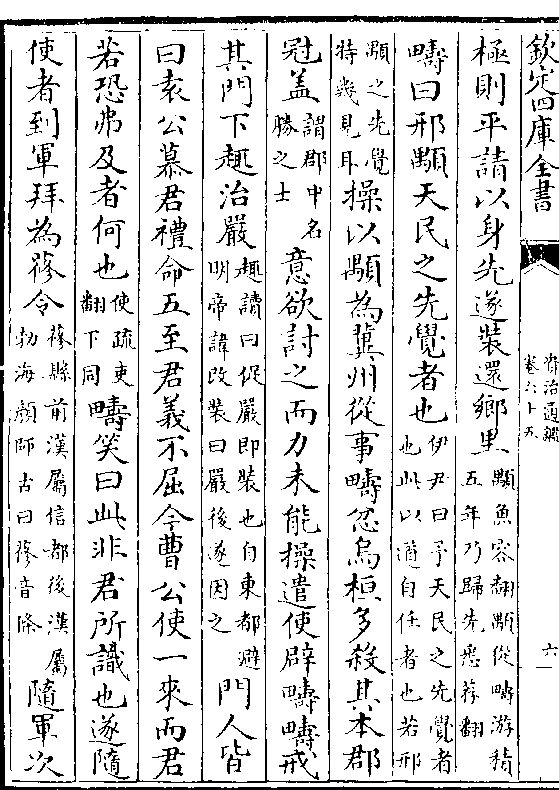 欽定四庫全書
資治通鑑
卷六十五
六
極則平請以身先遂裝還鄉里顒魚容翻顒從疇游積
五年乃歸先悉薦翻
疇曰邢顒天民之先覺者也伊尹曰予天民之先覺者
也此以道自任者也若邢
顒之先覺
特幾見耳操以顒為冀州從事疇忽烏桓多殺其本郡
冠蓋謂郡中名
勝之士意欲討之而力未能操遣使辟疇疇戒
其門下趣治嚴趣讀曰促嚴即裝也自東都避
明帝諱改裝曰嚴後遂因之門人皆
曰袁公慕君禮命五至君義不屈今曹公使一來而君
若恐弗及者何也使疏吏
翻下同疇笑曰此非君所識也遂隨
使者到軍拜為蓨令蓨縣前漢屬信都後漢屬
勃海顏師古曰蓨音條隨軍次